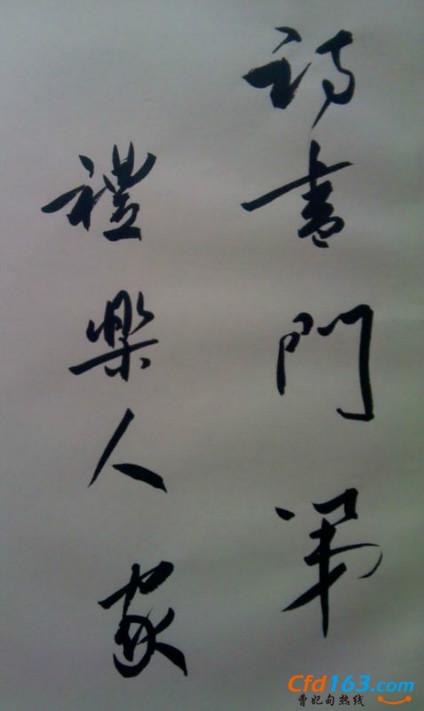 詩書門第
禮樂人家
Cfd163.com
曹妃甸热线